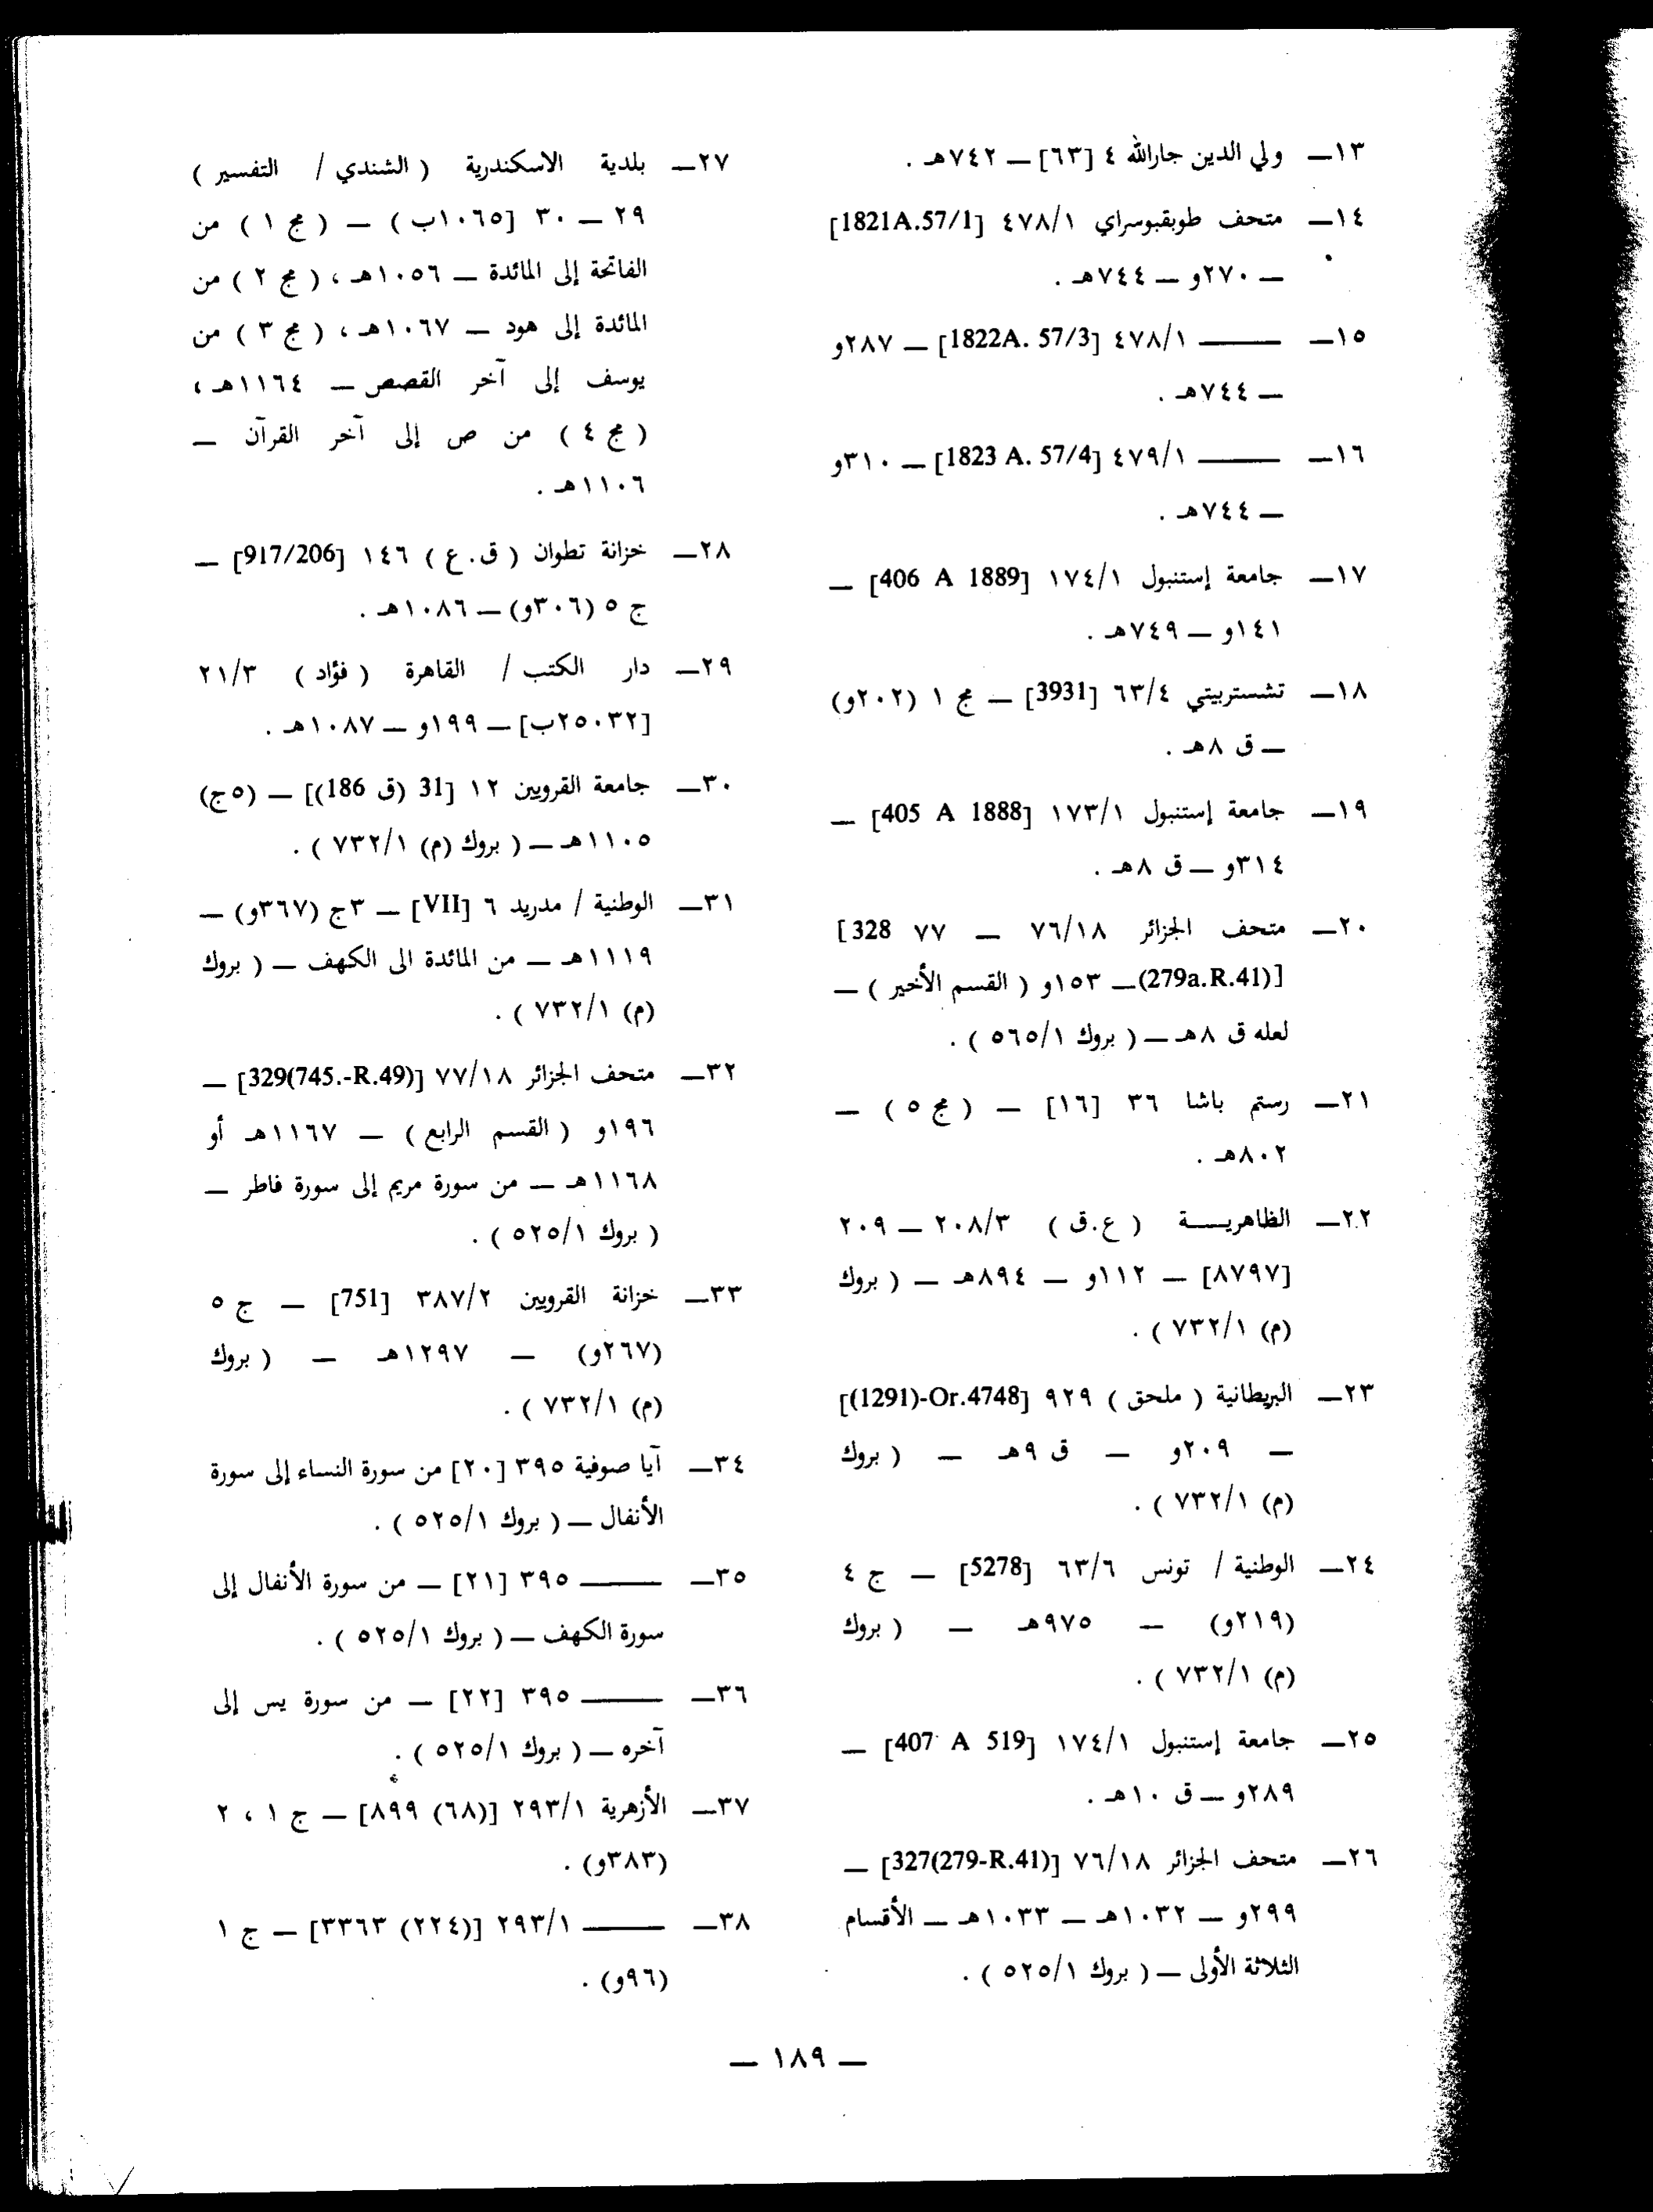 ١٣ـ ولي الدين جارالله ٤ [٦٣] ــ ٧٤٢هـ .
١٤ـ متحف طوبقبوسراي ٤٧٨/١ [1821A.57/1]
ــ ٢٧٠و ــ ٧٤٤هـ .
١٥ـ ــــــ ٤٧٨/١ [1822A. 57/3] ــ ٢٨٧و
ــ ٧٤٤هـ .
١٦ـ ــــــ ٤٧٩/١ [1823 A. 57/4] ــ ٣١٠و
ــ ٧٤٤هـ .
١٧ـ جامعة إستنبول ١٧٤/١ [406 A 1889] ــ
١٤١و ــ ٧٤٩هـ .
١٨ـ تشستربيتي ٦٣/٤ [3931] ــ مج ١ (٢٠٢و)
ــ ق ٨هـ .
١٩ـ جامعة إستنبول ١٧٣/١ [405 A 1888] ــ
٣١٤و ــ ق ٨هـ .
٢٠ـ متحف الجزائر ٧٦/١٨ ــ ٧٧ [328
(279a.R.41)] ــ ١٥٣و ( القسم الأخير ) ــ
لعله ق ٨هـ ــ ( بروك ٥٦٥/١ ) .
٢١ـ رستم باشا ٣٦ [١٦] ــ ( مج ٥ ) ــ
٨٠٢هـ .
٢٢ـ الظاهريـــة ( ع.ق ) ٢٠٨/٣ ــ ٢٠٩
[٨٧٩٧] ــ ١١٢و ــ ٨٩٤هـ ــ ( بروك
(م) ٧٣٢/١ ) .
٢٣ـ البريطانية ( ملحق ) ٩٢٩ [(1291)-Or.4748]
ــ ٢٠٩و ــ ق ٩هـ ــ ( بروك
(م) ٧٣٢/١ ) .
٢٤ـ الوطنية / تونس ٦٣/٦ [5278] ــ ج ٤
(٢١٩و) ــ ٩٧٥هـ ــ ( بروك
(م) ٧٣٢/١ ) .
٢٥ـ جامعة إستنبول ١٧٤/١ [407 A 519] ــ
٢٨٩و ــ ق ١٠هـ .
٢٦ـ متحف الجزائر ٧٦/١٨ [327(279-R.41)] ــ
٢٩٩و ــ ١٠٣٢هـ ــ ١٠٣٣هـ ــ الأقسام
الثلاثة الأولى ــ ( بروك ٥٢٥/١ ) .
٢٧ـ بلدية الاسكندرية ( الشندي / التفسير )
٢٩ ــ ٣٠ [١٠٦٥ب ) ــ ( مج ١ ) من
الفاتحة إلى المائدة ــ ١٠٥٦هـ ، ( مج ٢ ) من
المائدة إلى هود ــ ١٠٦٧هـ ، ( مج ٣ ) من
يوسف إلى آخر القصص ــ ١١٦٤هـ ،
( مج ٤ ) من ص إلى آخر القرآن ــ
١١٠٦هـ .
٢٨ـ خزانة تطوان ( ق.ع ) ١٤٦ [917/206] ــ
ج ٥ (٣٠٦و) ــ ١٠٨٦هـ .
٢٩ـ دار الكتب / القاهرة ( فؤاد ) ٢١/٣
[٢٥٠٣٢ب] ــ ١٩٩و ــ ١٠٨٧هـ .
٣٠ـ جامعة القرويين ١٢ [31 (ق 186)] ــ (٥ج)
١١٠٥هـ ــ ( بروك (م) ٧٣٢/١ ) .
٣١ـ الوطنية / مدريد ٦ [VII] ــ ٣ج (٣٦٧و) ــ
١١١٩هـ ــ من المائدة الى الكهف ــ ( بروك
(م) ٧٣٢/١ ) .
٣٢ـ متحف الجزائر ٧٧/١٨ [329(745.-R.49)] ــ
١٩٦و ( القسم الرابع ) ــ ١١٦٧هـ أو
١١٦٨هـ ــ من سورة مريم إلى سورة فاطر ــ
( بروك ٥٢٥/١ ) .
٣٣ـ خزانة القرويين ٣٨٧/٢ [751] ــ ج ٥
(٢٦٧و) ــ ١٢٩٧هـ ــ ( بروك
(م) ٧٣٢/١ ) .
٣٤ـ آيا صوفية ٣٩٥ [٢٠] من سورة النساء إلى سورة
الأنفال ــ ( بروك ٥٢٥/١ ) .
٣٥ـ ــــــ ٣٩٥ [٢١] ــ من سورة الأنفال إلى
سورة الكهف ــ ( بروك ٥٢٥/١ ) .
٣٦ـ ــــــ ٣٩٥ [٢٢] ــ من سورة يس إلى
آخره ــ ( بروك ٥٢٥/١ ) .
٣٧ـ الأزهرية ٢٩٣/١ [(٦٨) ٨٩٩] ــ ج ١ ، ٢
(٣٨٣و) .
٣٨ـ ــــــ ٢٩٣/١ [(٢٢٤) ٣٣٦٣] ــ ج ١
(٩٦و) .
ــ ١٨٩ ــ